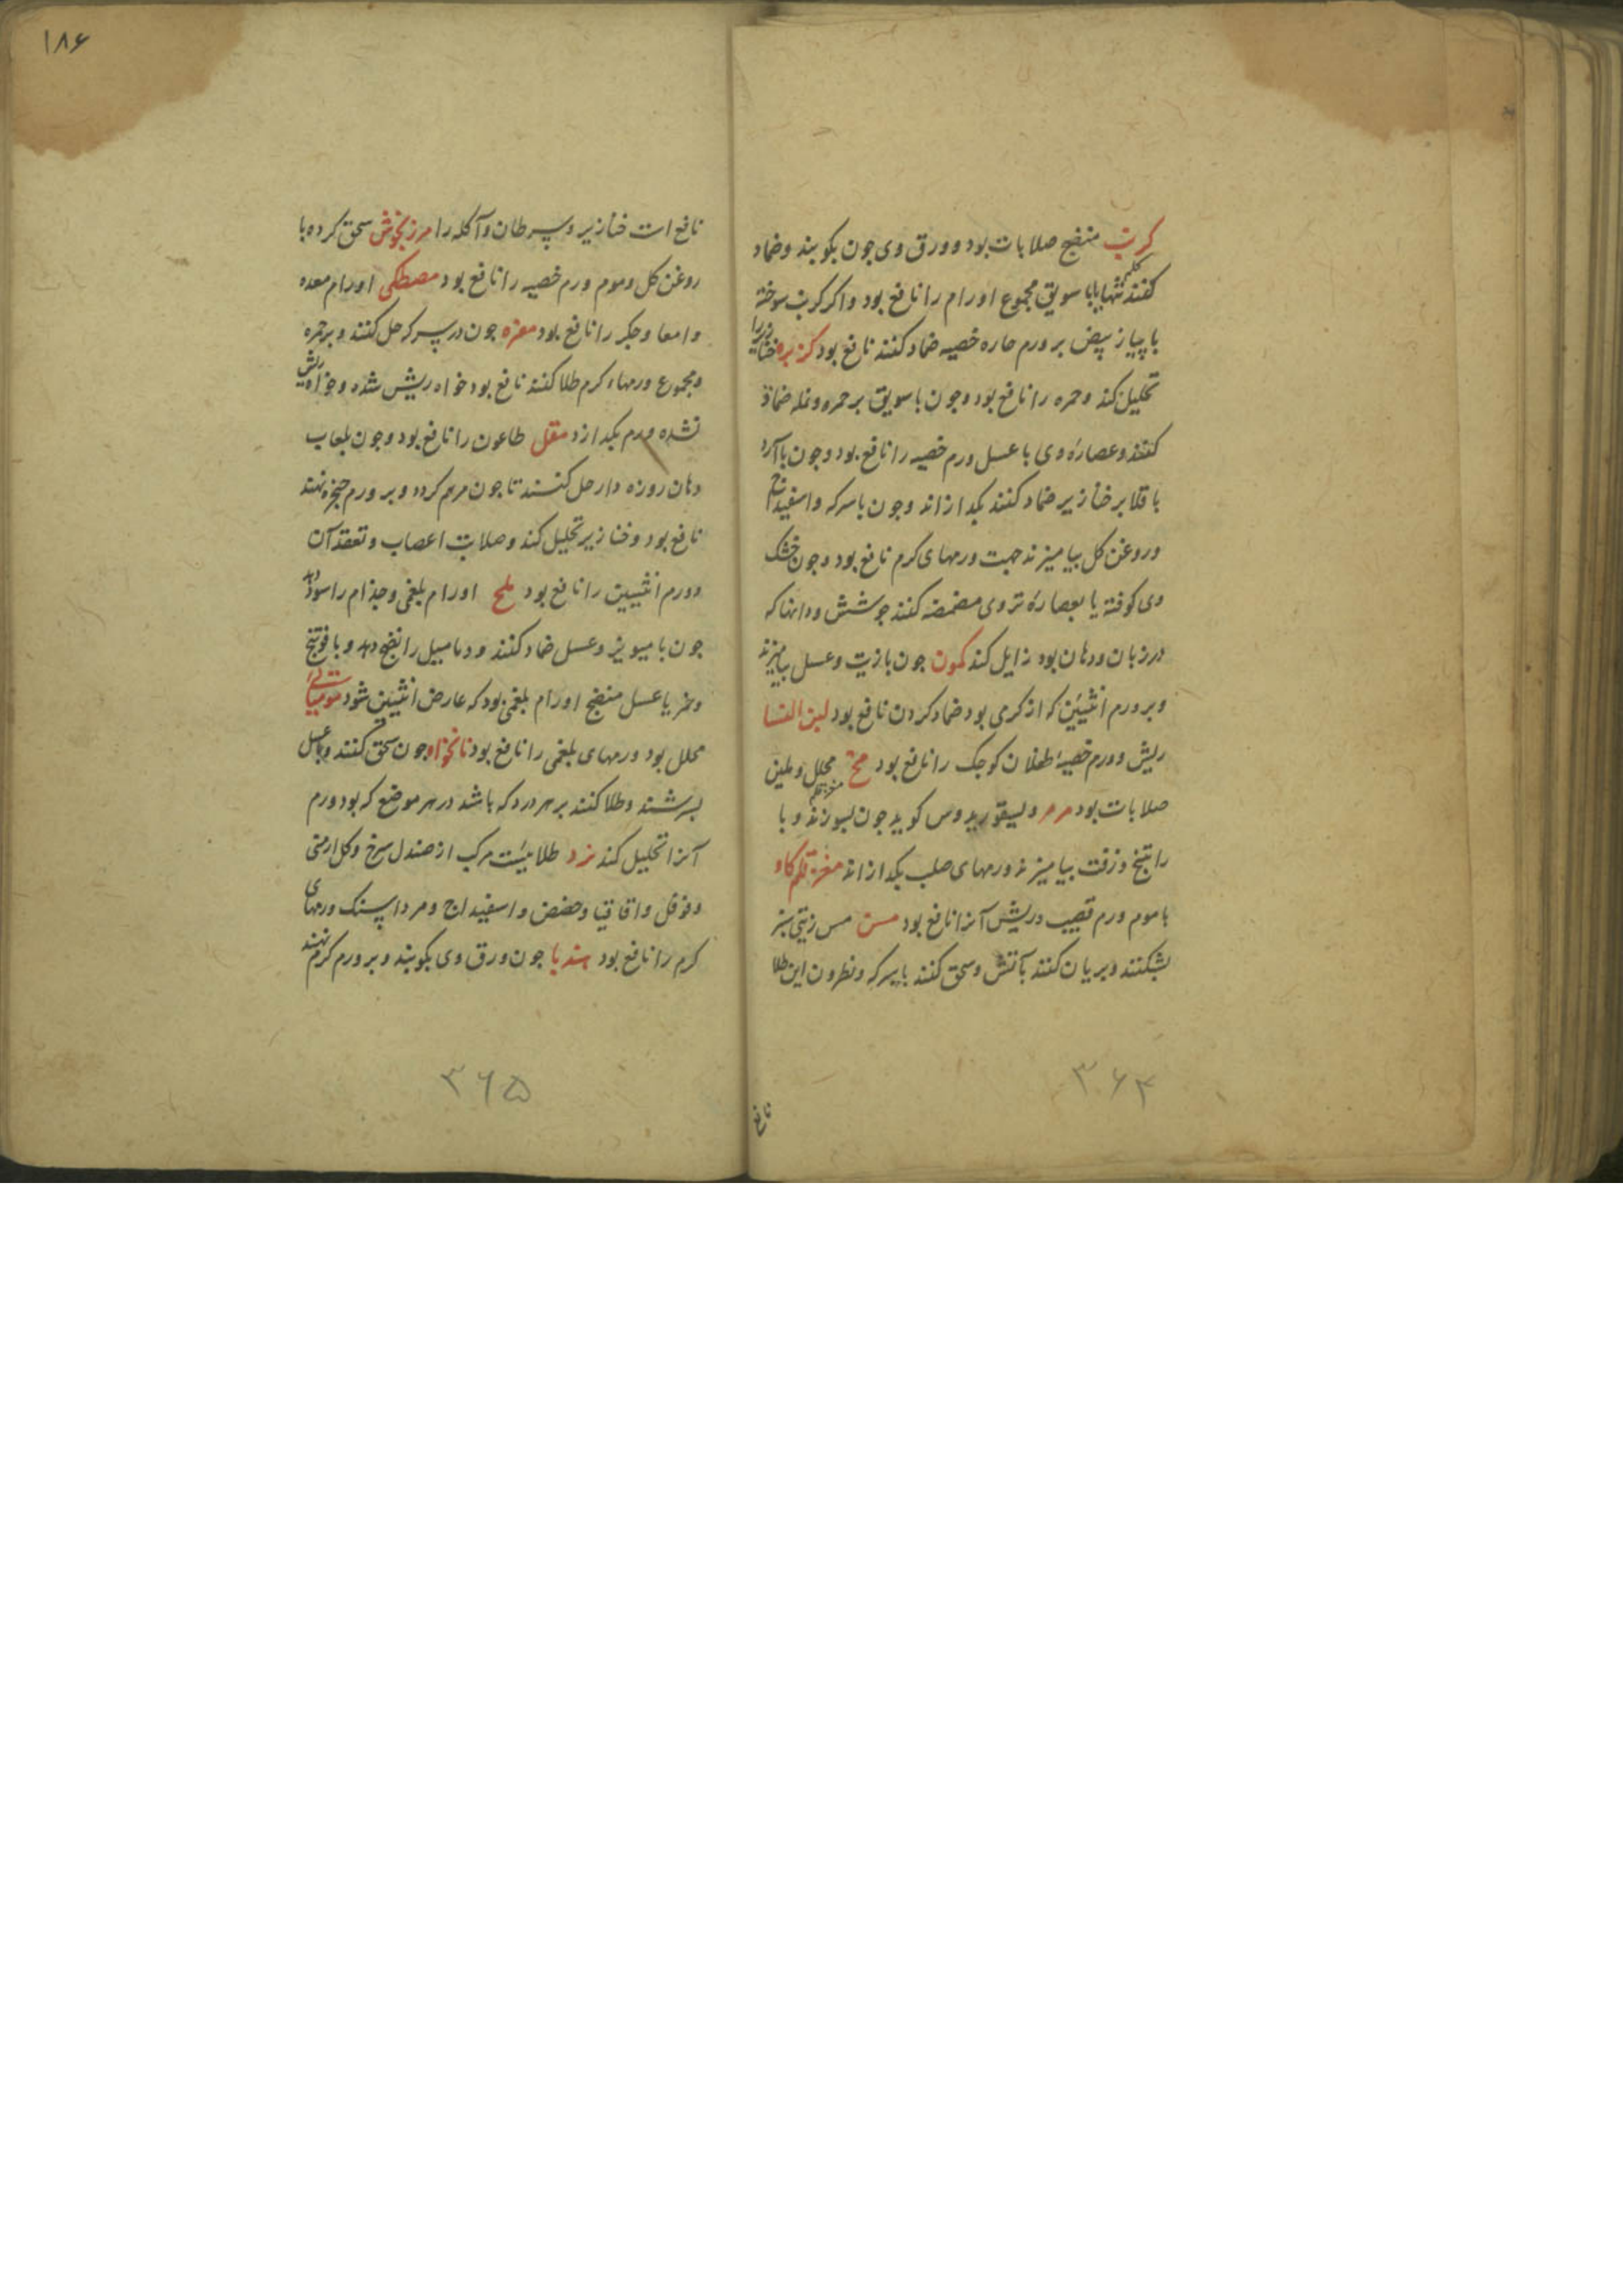 کرنب منضج صلابات بود و ورق وی جون بکوبند وضماد
کنند تنها یابا سویق مجموع اورام را نافع بود واکر کرنب سوخته
با پیاز بیض بر ورم حاره خصیه ضماد کنند نافع بود کزبره خنازیر را
تحلیل کند وحمره را نافع بود وجون با سویق بر حمره ونمله ضماد
کنند وعصارهٔ وی با عسل ورم خصیه را نافع بود وجون باآرد
باقلا بر خنازیر ضماد کنند بکدازاند وجون باسرکه واسفیداج
وروغن کل بیامیزند جهت ورمهای کرم نافع بود وجون خشک
وی کوفته یا بعصارهٔ تر وی مضمضه کنند جوشش ودانهاکه
در زبان ودهان بود زایل کند کمون جون بازیت وعسل بیامیزند
وبر ورم انثیین که از کرمی بود ضماد کردن نافع بود لبن النسا
ریش وورم خصیهٔ طفلان کوجک را نافع بود مخ محلل وملین
صلابات بود مرمر ولیسقوریدوس کوید جون بسوزند وبا
راتینج وزفت بیامیزند ورمهای صلب بکدازاند مغز قلم کاو
باموم ورم قضیب وریش آنرا نافع بود مسن مس زیتی سبز
بشکنند وبریان کنند بآتش وسحق کنند باسرکه ونطرون این طلا
نافع
۳۶۴
۱۸۶
نافع است خنازیر وسرطان وآکله را مرزنجوش سحق کرده با
روغن کل وموم ورم خصیه را نافع بود مصطکی اورام معده
وامعا وجکر را نافع بود مغره جون در سرکه حل کنند وبر حمره
ومجموع ورمهاء کرم طلا کنند نافع بود خواه ریش شده وخواه ریش
نشده ورم بکدازد مقل طاعون را نافع بود وجون بلعاب
دهان روزه دار حل کنند تا جون مرهم کردد وبر ورم حنجره نهند
نافع بود وخنازیر تحلیل کند وصلابت اعصاب وتعقد آن
وورم انثیین را نافع بود ملح اورام بلغمی وجذام را سود دهد
جون با میویز وعسل ضماد کنند ودمامیل را نضج دهد وبا فوتنج
وخمر یا عسل منضج اورام بلغمی بود که عارض انثیین شود مومیائی
محلل بود ورمهای بلغمی را نافع بود نانخواه جون سحق کنند وباعسل
بسرشند وطلا کنند بر هر درد که باشد در هر موضع که بود ورم
آنرا تحلیل کند نرد طلائیست مرکب از صندل سرخ وکل ارمنی
وفوفل واقاقیا وحضض واسفیداج ومرداسنک ورمهای
کرم را نافع بود هندبا جون ورق وی بکوبند وبر ورم کرم نهند
۳۶۵